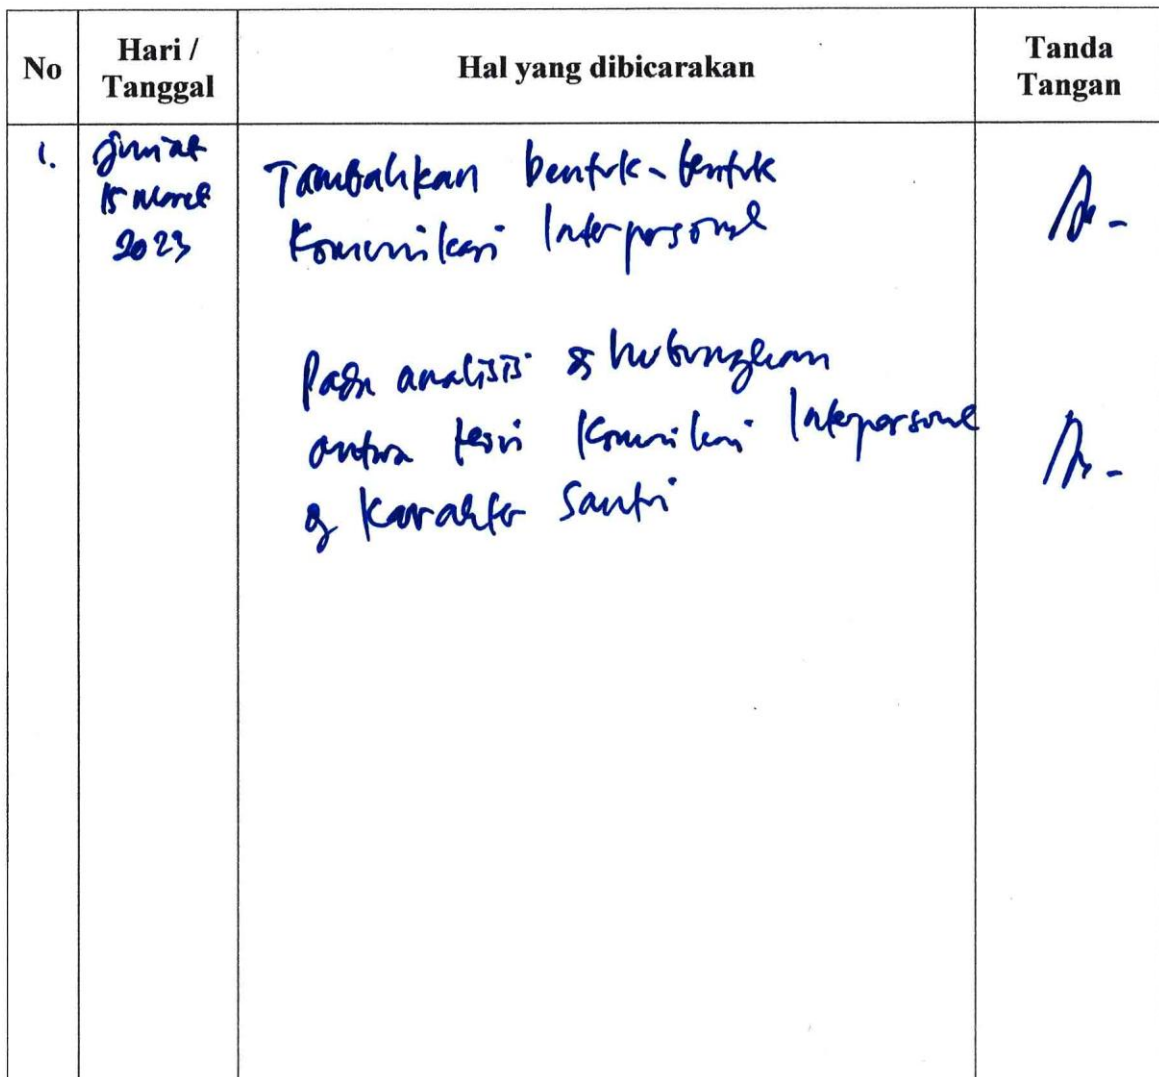 No
Hari /
Tanggal
Hal yang dibicarakan
Tanda
Tangan
1.
Jum'at
15 Maret
2023
Tambahkan bentuk-bentuk
Komunikasi Interpersonal
Pada analisis dihubungkan
antara teori Komunikasi Interpersonal
& Karakter Santri